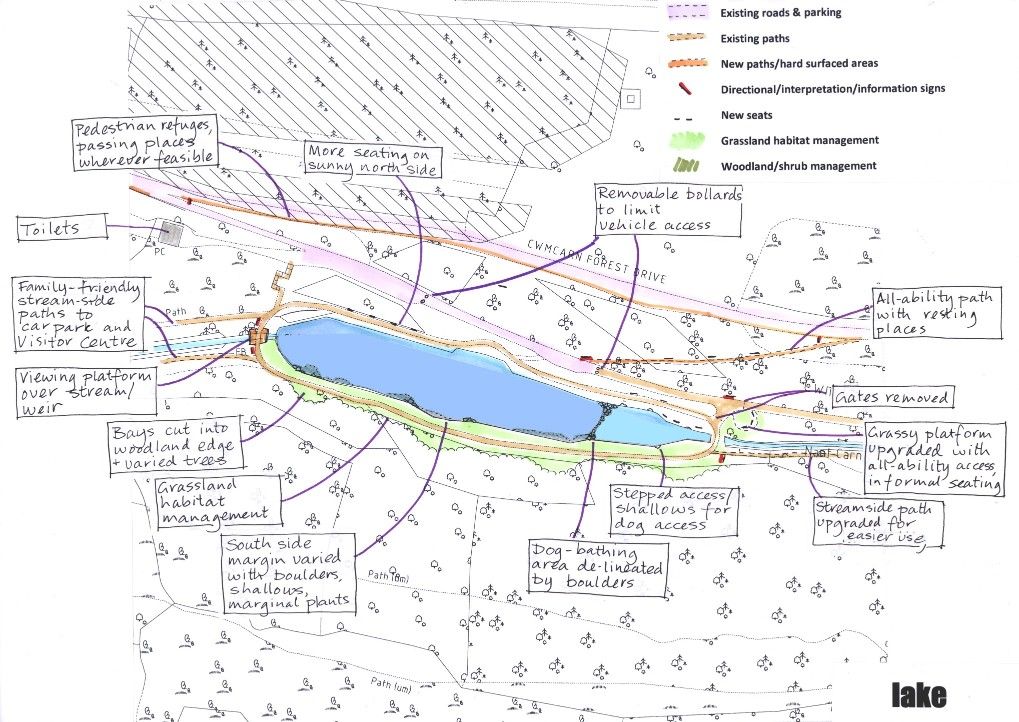 Existing roads & parking
Existing paths
New paths/hard surfaced areas
Directional/interpretation/information signs
New seats
Grassland habitat management
Woodland/shrub management
Pedestrian refuges,
passing places
wherever feasible
More seating on
sunny north side
Removable bollards
to limit
vehicle access
Toilets
PC
CWMCARN FOREST DRIVE
Family-friendly
stream-side
paths to
car park and
Visitor Centre
Path
FB
All-ability path
with resting
places
Viewing platform
over stream/
weir
Gates removed
Bays cut into
woodland edge
+ varied trees
Grassy platform
upgraded with
all-ability access,
informal seating
Carn
Grassland
habitat
management
Stepped access/
shallows for
dog access
Streamside path
upgraded for
easier use,
South side
margin varied
with boulders,
shallows,
marginal plants
Dog-bathing
area de-lineated
by boulders
Path (um)
Path (um)
lake